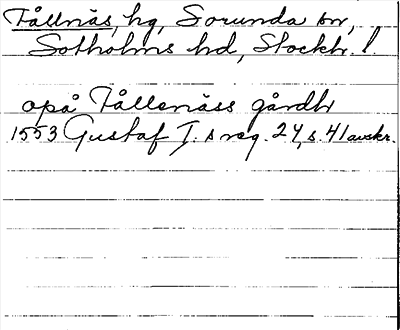 Fållnäs, hg, Sorunda sn,
Sotholms hd, Stockh. l.
opå Fållenäss gårdh
1553 Gustaf I:s reg. 24, s. 41 avskr.